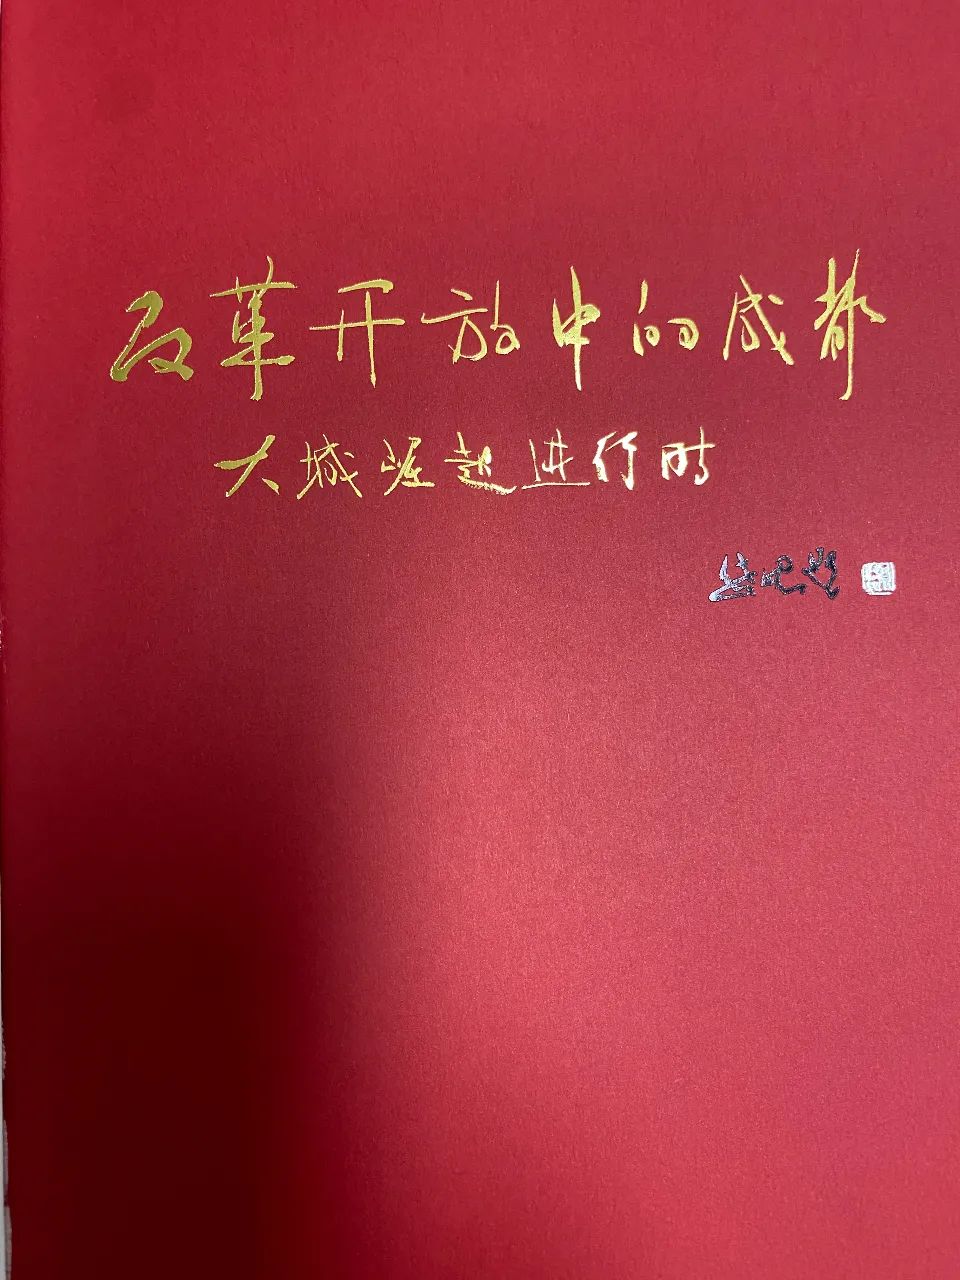 改革开放中的成都
大城崛起进行时